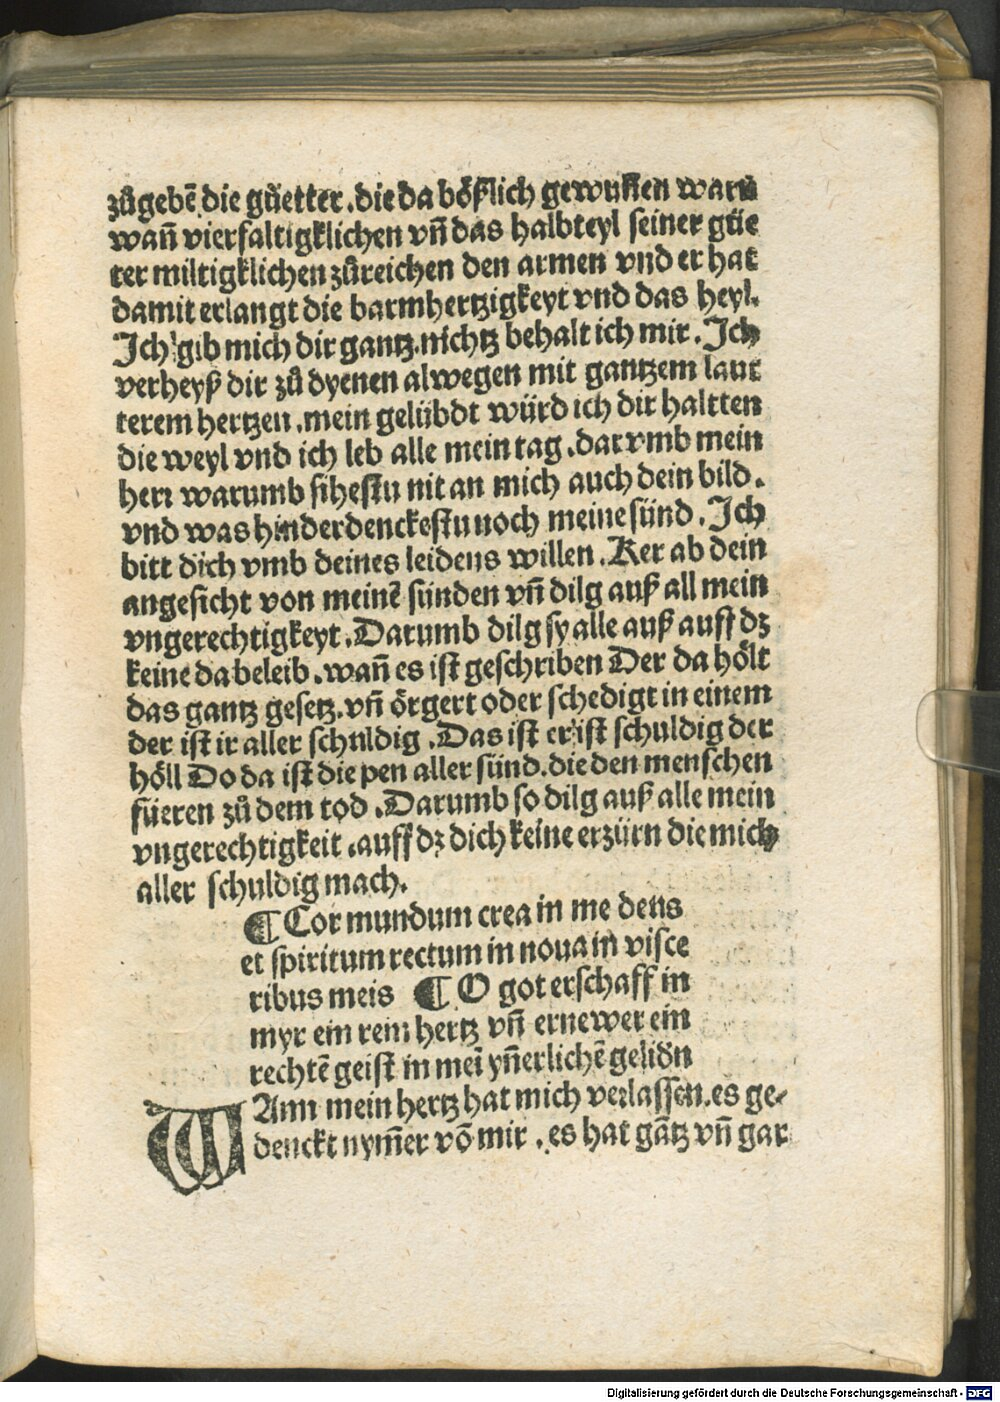 zů gebē die gůetter. die da bößlich gewunnen warn
wañ vierfaltigklichen vñ das halbteyl seiner güe
ter miltigklichen zůreichen den armen vnd er hat
damit erlangt die barmhertzigkeyt vnd das heyl.
Ich gib mich dir gantz. nichtz behalt ich mir. Ich
verheyß dir zů dyenen alwegen mit gantzem laut
terem hertzen. mein gelübdt würd ich dir haltten
die weyl vnd ich leb alle mein tag. darvmb mein
herr warumb sihestu nit an mich auch dein bild.
vnd was hinderdenckestu noch meine sünd. Ich
bitt dich vmb deines leidens willen. Ker ab dein
angesicht von meinē sünden vñ dilg auß all mein
vngerechtigkeyt. Darumb dilg sy alle auß auff dz
keine da beleib. wañ es ist geschriben Der da hölt
das gantz gesetz. vñ örgert oder schedigt in einem
der ist ir aller schuldig. Das ist er ist schuldig der
höll Do da ist die pen aller sünd. die den menschen
füeren zů dem tod. Darumb so dilg auß alle mein
vngerechtigkeit. auff dz dich keine erzürn die mich
aller schuldig mach.
¶ Cor mundum crea in me deus
et spiritum rectum in noua in visce
ribus meis ¶ O got erschaff in
myr ein rein hertz vñ ernewer ein
rechtē geist in meī yñerlichē gelidn
WAnn mein hertz hat mich verlassen. es ge-
denckt nym̄er vō mir. es hat gātz vñ gar
Digitalisierung gefördert durch die Deutsche Forschungsgemeinschaft - DFG